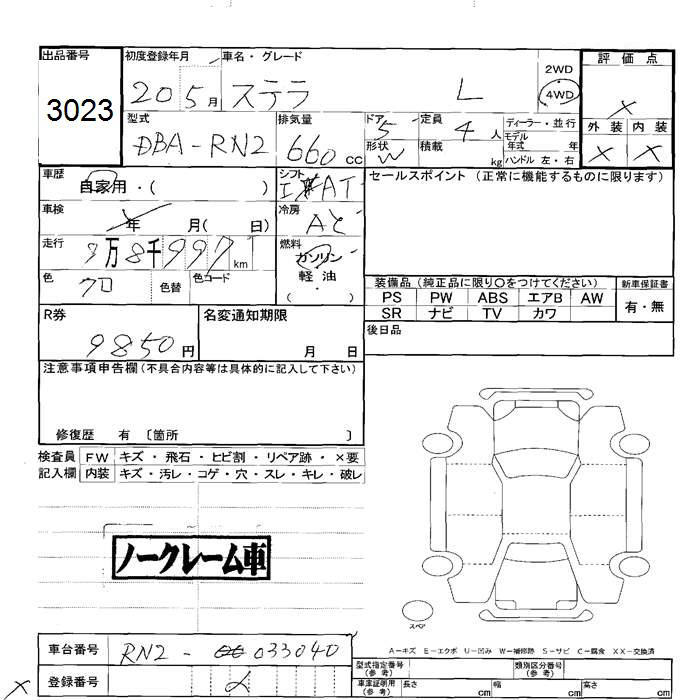 出品番号
3023
初度登録年月
20 5月
車名・グレード
ステラ L
2WD
4WD
評価点
×
外装 内装
× ×
型式
DBA-RN2
排気量
660 cc
ドア
5
形状
W
定員
4 人
積載
kg
ディーラー・並行
モデル年式 年
ハンドル 左・右
車歴
自家用・( )
シフト
AT
セールスポイント (正常に機能するものに限ります)
車検
年 月( 日)
冷房
AC
走行
万 8千997 km
燃料
ガソリン
軽・油
・( )
色
クロ
色替
色コード
装備品 (純正品に限り○をつけてください)
PS PW ABS エアB AW
SR ナビ TV カワ
新車保証書
有・無
R券
9850円
名変通知期限
月 日
後日品
注意事項申告欄(不具合内容等は具体的に記入して下さい)
修復歴 有 〔箇所 〕
検査員記入欄
FW キズ・飛石・ヒビ割・リペア跡・×要
内装 キズ・汚レ・コゲ・穴・スレ・キレ・破レ
ノークレーム車
スペア
A=キズ E=エクボ U=凹み W=補修跡 S=サビ C=腐食 XX=交換済
車台番号
RN2-033040
登録番号
×
型式指定番号(参考)
類別区分番号(参考)
車庫証明用(参考) 長さ cm 幅 cm 高さ cm